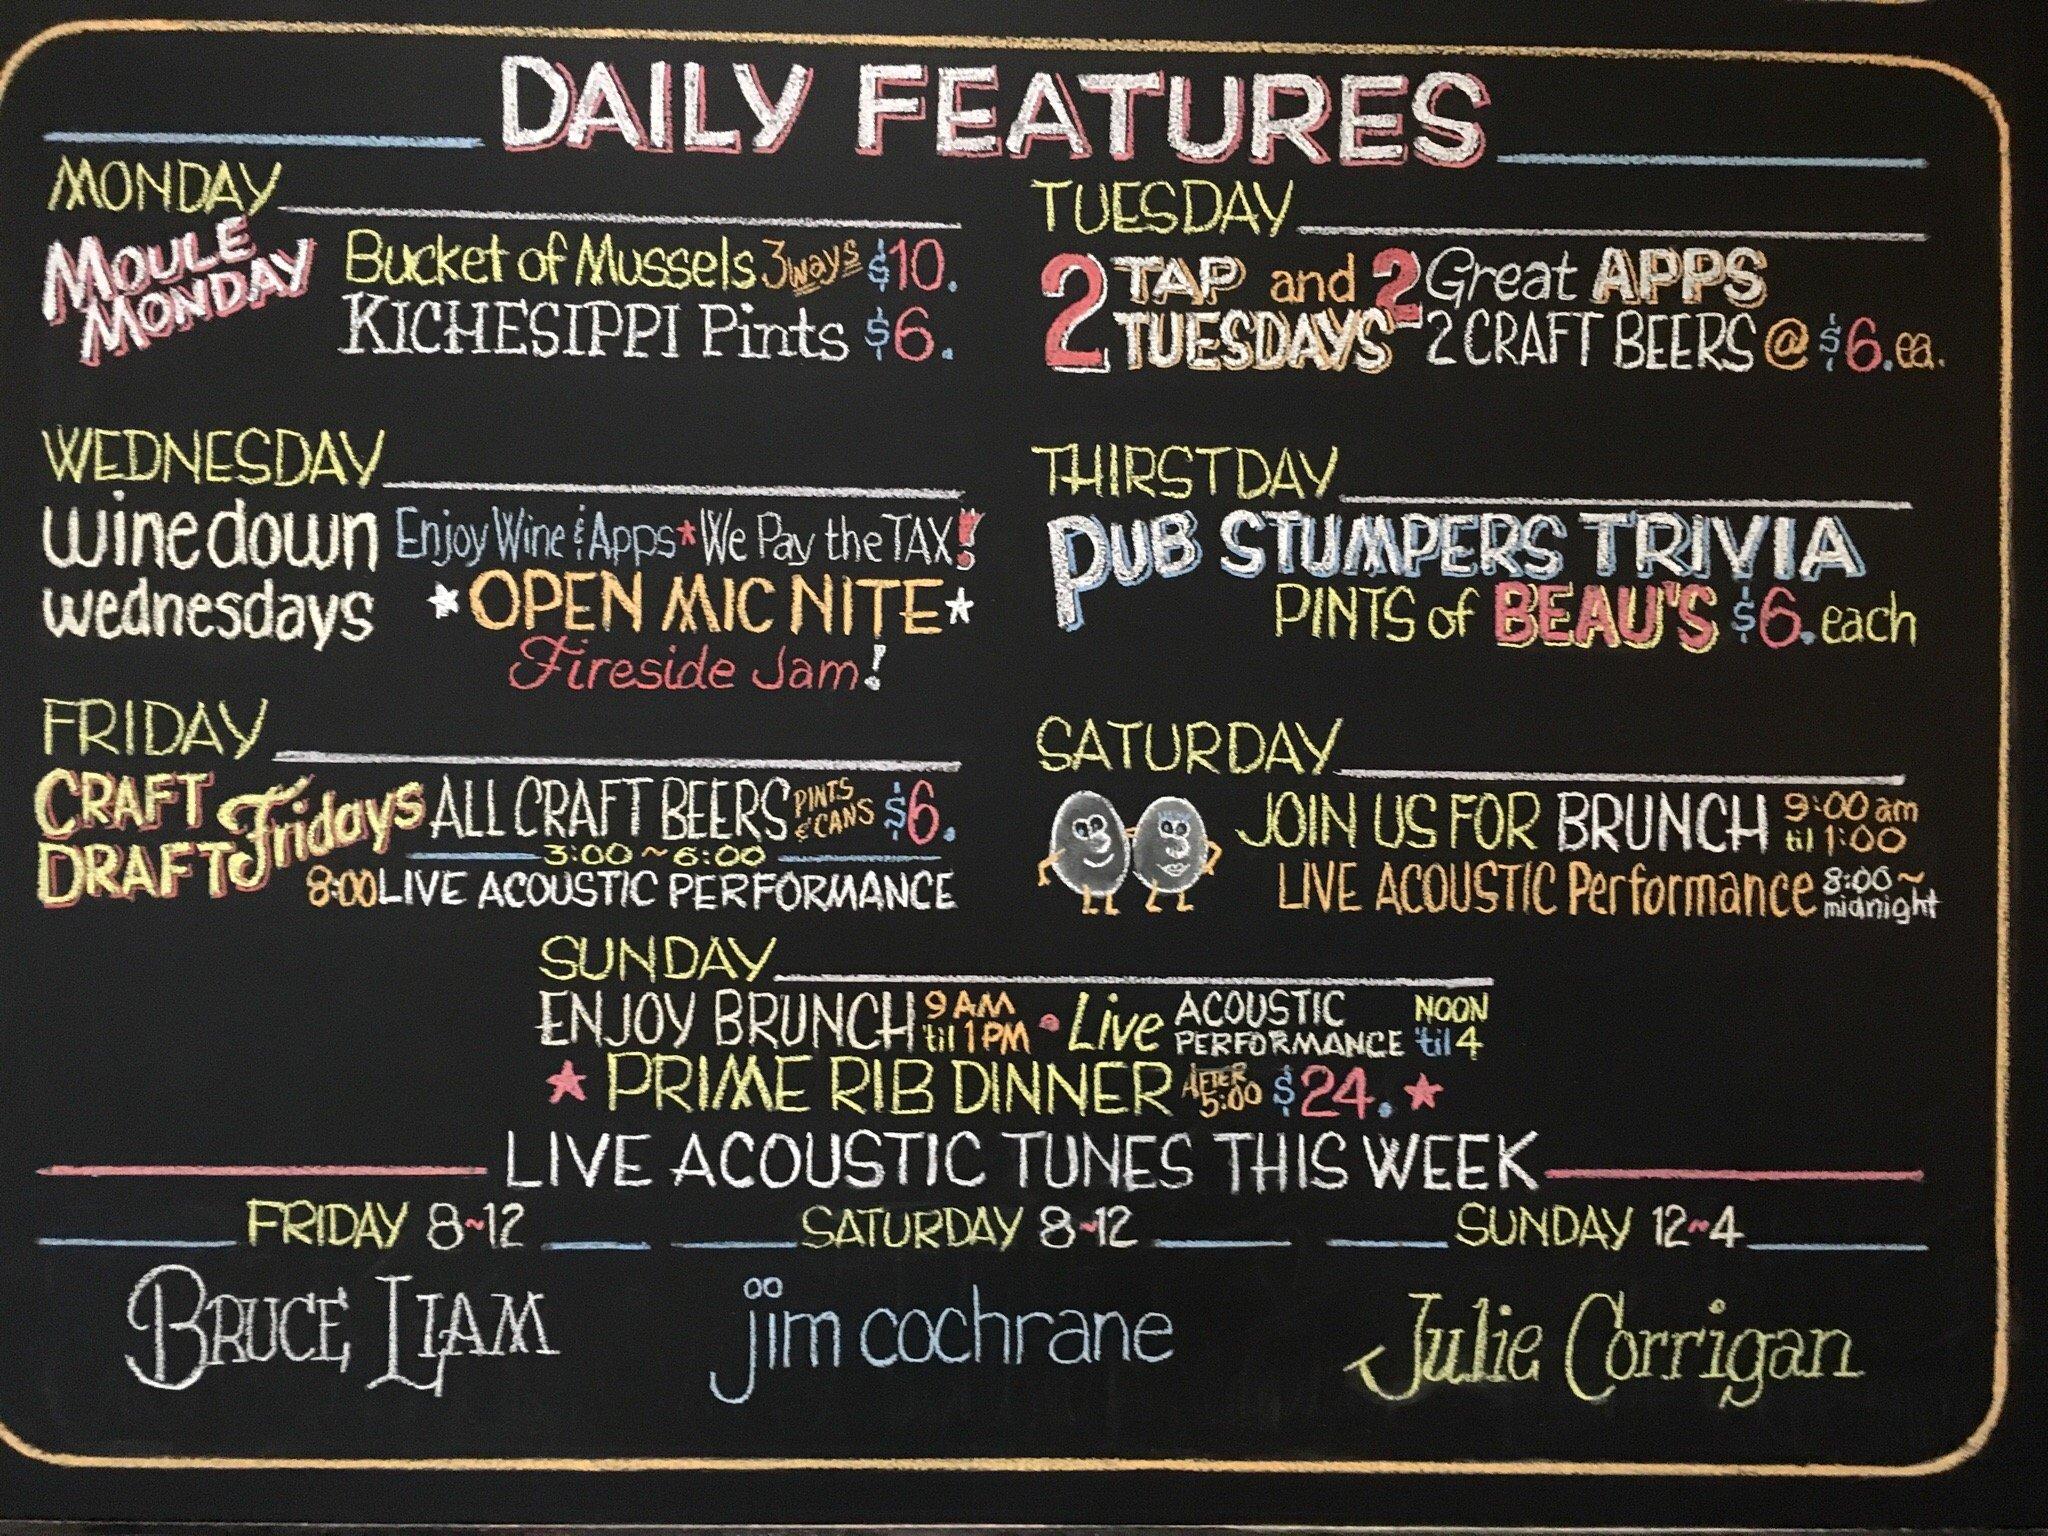 DAILY FEATURES
MONDAY
MOULE MONDAY
Bucket of Mussels 3 ways $10.
KICHESIPPI Pints $6.
TUESDAY
2 TAP and 2 Great APPS
TUESDAYS 2 CRAFT BEERS @ $6. ea.
WEDNESDAY
wine down wednesdays
Enjoy Wine & Apps * We Pay the TAX!
★ OPEN MIC NITE ★
Fireside Jam!
THIRSTDAY
PUB STUMPERS TRIVIA
PINTS of BEAU'S $6. each
FRIDAY
CRAFT DRAFT Fridays
ALL CRAFT BEERS PINTS & CANS $6.
3:00 ~ 6:00
8:00 LIVE ACOUSTIC PERFORMANCE
SATURDAY
JOIN US FOR BRUNCH 9:00 am til 1:00
LIVE ACOUSTIC Performance 8:00 ~ midnight
SUNDAY
ENJOY BRUNCH 9 AM 'til 1 PM • Live ACOUSTIC PERFORMANCE NOON 'til 4
★ PRIME RIB DINNER AFTER 5:00 $24. ★
LIVE ACOUSTIC TUNES THIS WEEK
FRIDAY 8~12
BRUCE LIAM
SATURDAY 8~12
jim cochrane
SUNDAY 12~4
Julie Corrigan